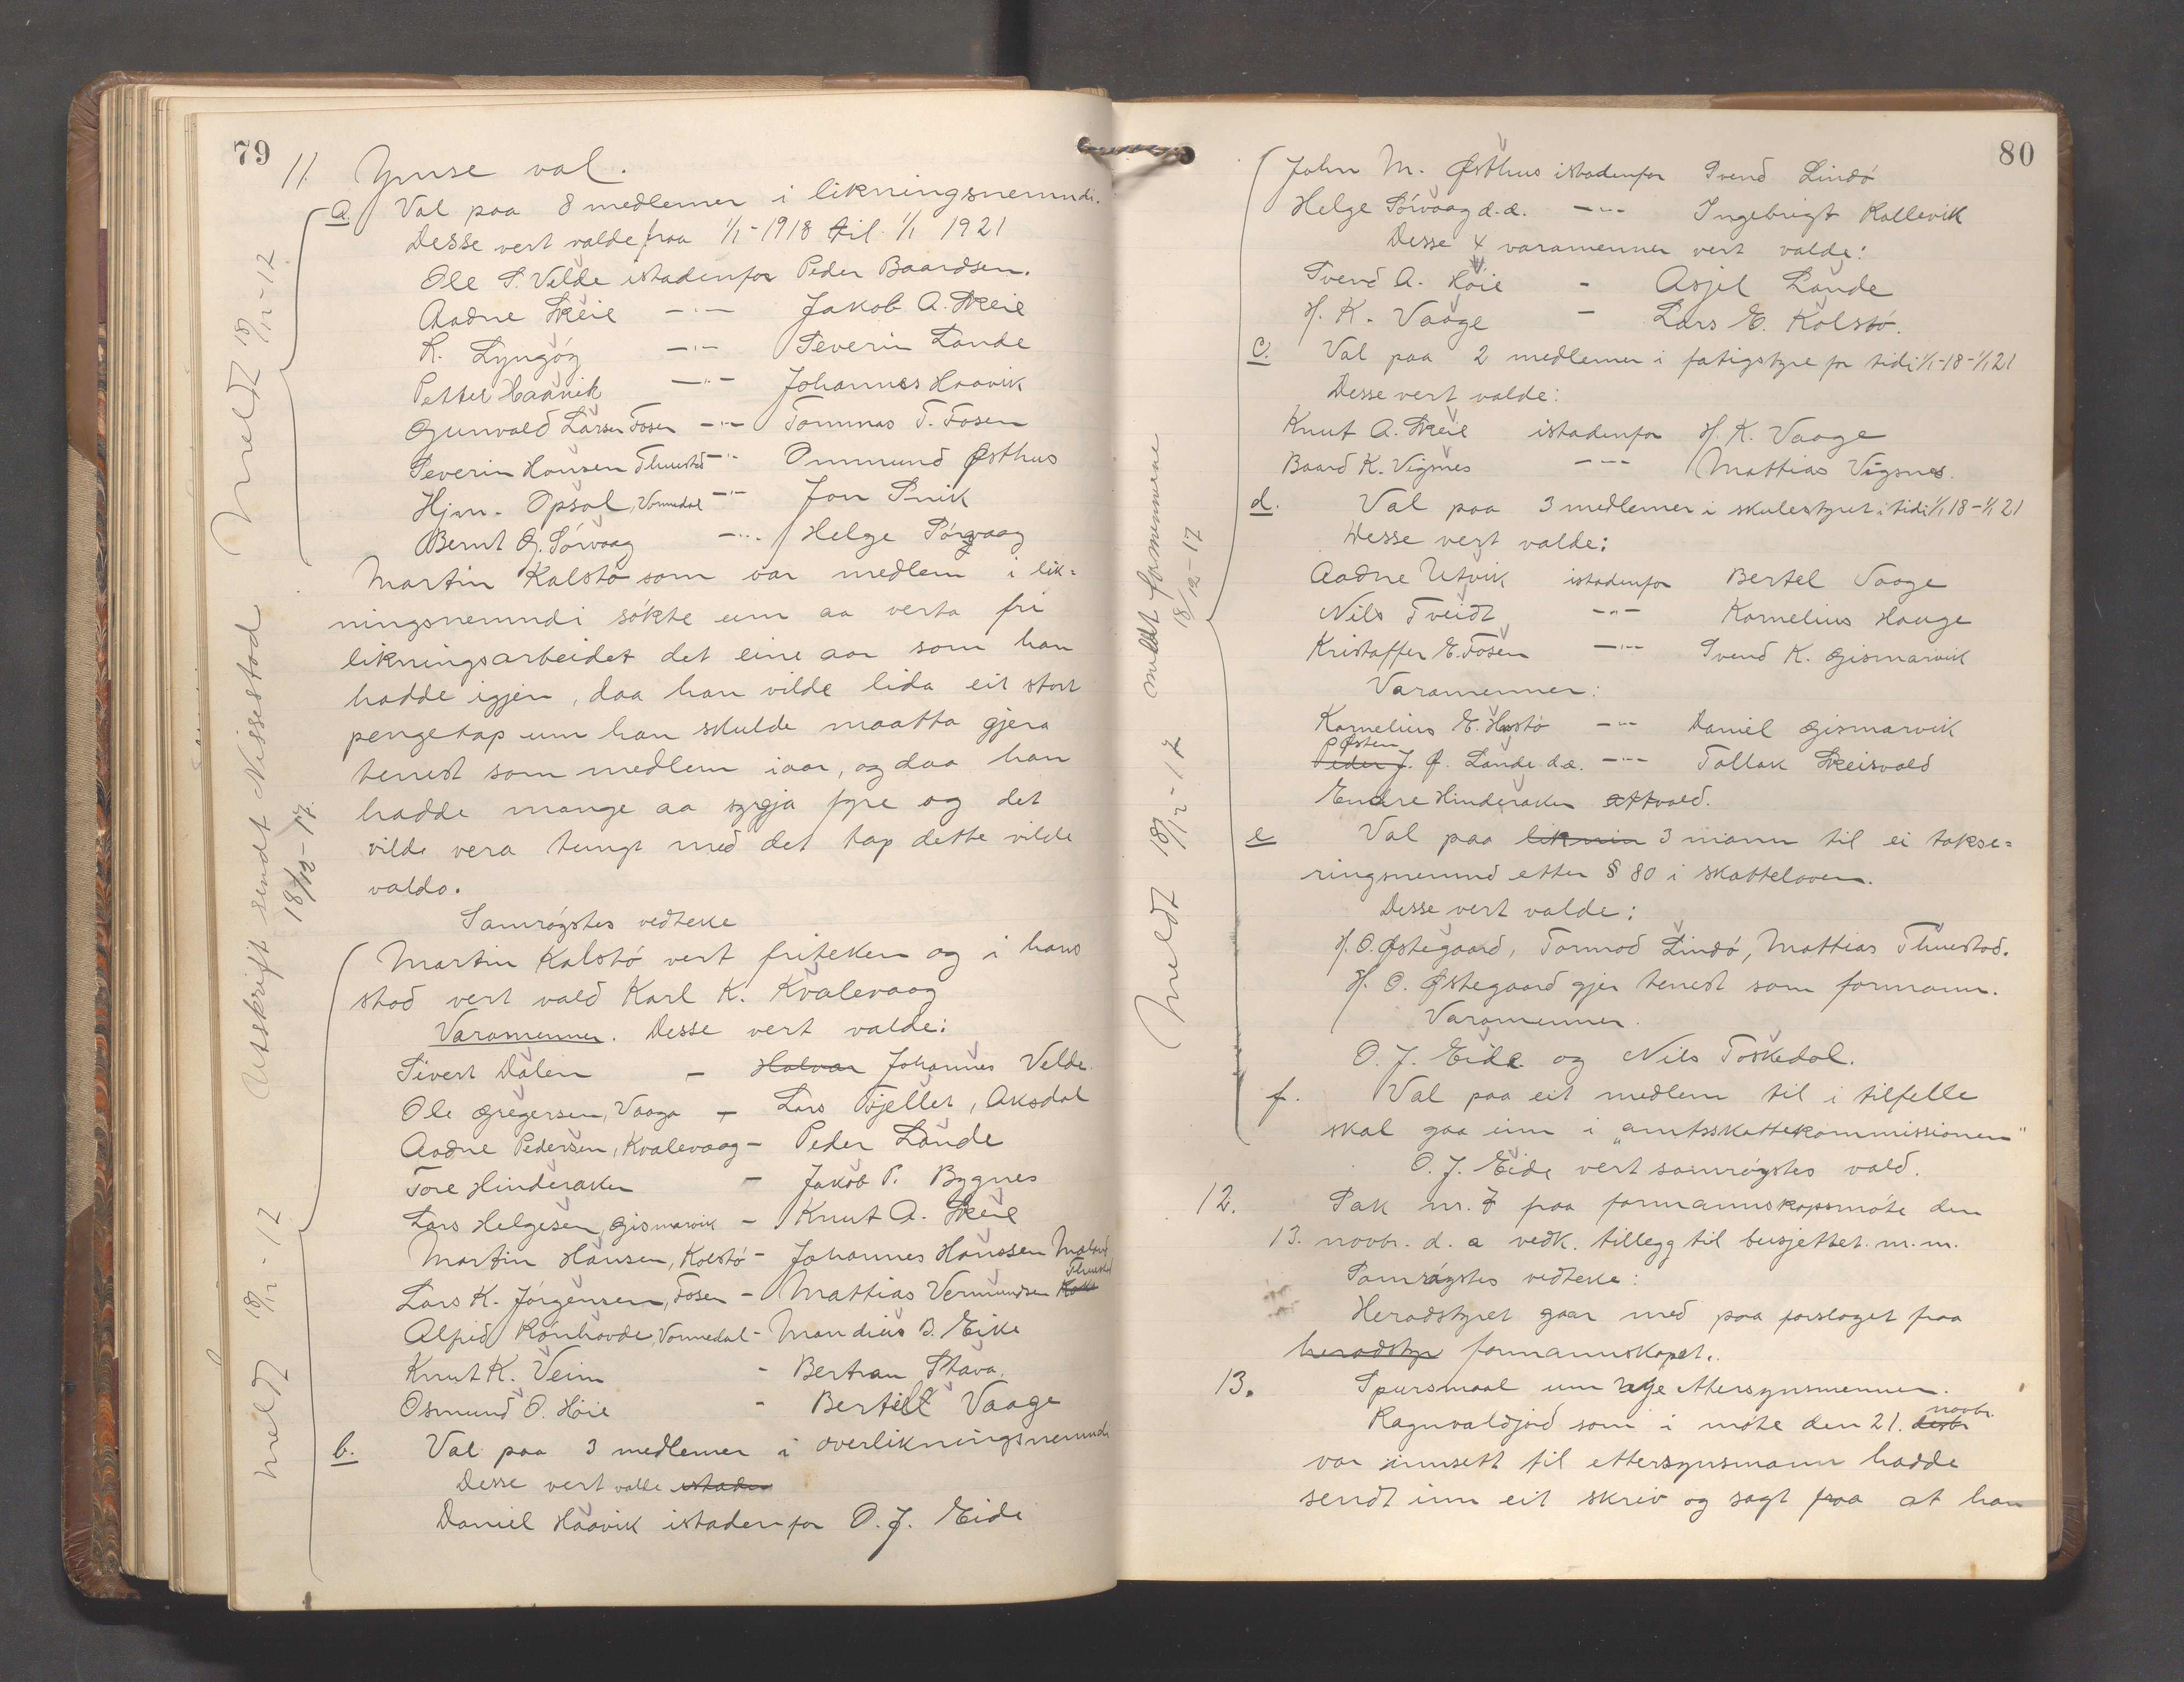 79
11. Ymse val.
a. Val paa 8 medlemer i likningsnemndi.
Desse vert valde fraa 1/1-1918 til 1/1 1921
Ole S. Velde istadenfor Peder Baardsen.
Aadne Skeie —"— Jakob A. Skeie
K. Lyngøy —"— Severin Lande
Petter Haavik —"— Johannes Haavik
Gunvald Larsen Fosen —"— Tommas T. Fosen
Severin Hansen Tluestad —"— Ommund Østhus
Hjm. Opsal, Vormedal —"— Jon Snik
Bernt G. Sørvaag —"— Helge Sørvaag
Martin Kalstø som var medlem i lik=
ningsnemndi søkte um aa verta fri
likningsarbeidet det eine aar som han
hadde igjen, daa han vilde lida eit stort
pengetap um han skulde maatta gjera
tenest som medlem iaar, og daa han
hadde mange aa syrgja fyre og det
vilde vera tungt med det tap dette vilde
valda.
Samrøystes vedteke
Martin Kalstø vert friteken og i hans
stad vert vald Karl K. Kvalevaag
Varamenner. Desse vert valde:
Sivert Dalen - Halvar Johannes Velde
Ole Gregersen, Vaaga - Lars Fjellet, Aksdal
Aadne Pedersen, Kvalevaag - Peder Lande
Tore Hinderaker - Jakob P. Bygnes
Lars Helgesen, Gismarvik - Knut A. Skeie
Martin Hansen, Kolstø - Johannes Hanssen
Lars K. Jørgensen, Fosen - Mattias Vermundsen Tluestad
Alfred Rønhovde, Vormedal - Mandius B. Eike
Knut K. Veim - Bertran Stava.
Osmund O. Høie - Bertel Vaage
b. Val paa 3 medlemer i overlikningsnemndi
Desse vert valde istaden
Daniel Haavik istadenfor O. J. Eide
Meldt 18/12-17
Utskrift sendt Nissestad
18/12-17.
meldt 18/12-17
80
John M. Østhus istadenfor Svend Lindø
Helge Sørvaag d.æ. —"— Ingebrigt Kallevik
Desse 4 varamenner vert valde:
Svend A. Høie - Asjel Lande
H. K. Vaage - Lars E. Kolstø.
c. Val paa 2 medlemer i fatigstyre for tidi 1/1-18-1/1 21
Desse vert valde:
Knut A. Skeie istadenfor H. K. Vaage
Baard K. Vigsnes —"— Mattias Vigsnes.
d. Val paa 3 medlemer i skulestyret i tidi 1/1 18-1/1 21
Desse vert valde:
Aadne Utvik istadenfor Bertel Vaage
Nils Tveidt —"— Kornelius Hauge
Kristoffer E. Fosen —"— Svend K. Gismarvik
Varamenner:
Kornelius E. Høstø —"— Daniel Gismarvik
Østen
Peder J. Ø. Lande d.æ. —"— Tollak Skeisvold
Endre Hinderaker attvald.
e Val paa liknin 3 mann til ei takse=
ringsnemnd etter § 80 i skatteloven.
Desse vert valde:
H. O. Østegaard, Tormod Lindø, Mattias Tluestad.
H. O. Østegaard gjer tenest som formann.
Varamenner.
O. J. Eide og Nils Toskedal.
f. Val paa eit medlem til i tilfelle
skal gaa inn i „amtsskattekommissionen"
O. J. Eide vert samrøystes vald.
12. Sak nr. 7 paa formannskapsmøte den
13. novbr. d. a vedk. tillegg til busjettet m.m.
Samrøystes vedteke:
Heradstyret gaar med paa forslaget fraa
heradstyr formannskapet.
13. Spursmaal um nye ettersynsmenner.
novbr.
Ragnvaldjord som i møte den 21. desbr
var innsett til ettersynsmann hadde
sendt inn eit skriv og sagt fraa at han
meldt formennene
18/12-17
Meldt 18/12-17